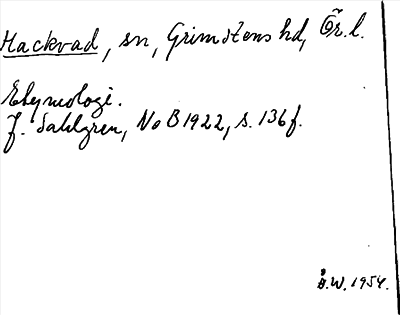 Hackvad, sn, Grimstens hd, Ör. l.
Etymologi.
J. Sahlgren, NoB 1922, s. 136 f.
Å.W. 1954.